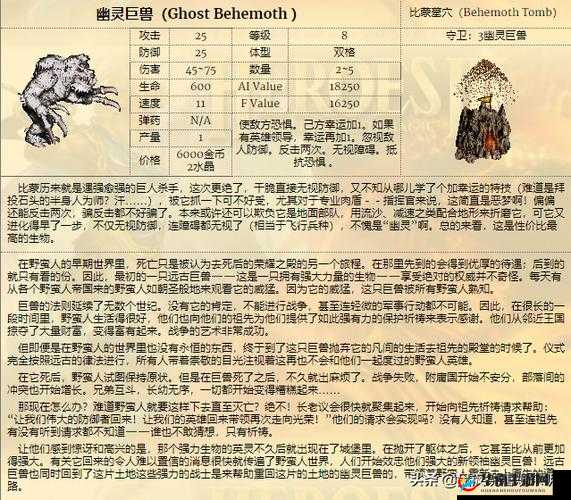 幽灵巨兽(Ghost Behemoth )
比蒙墓穴(Behemoth Tomb)
守卫:3幽灵巨兽
攻击 25 等级 8
防御 25 体型 双格
伤害 45~75 数量 2~5
生命 600 AI Value 18250
速度 11 F Value 16250
弹药 N/A
产量 1
价格 6000金币
2水晶
使敌方恐惧。己方幸运加1。如果
有英雄领导,幸运再加1。忽视敌
人防御。反击两次。无视障碍。抵
抗恐惧。
比蒙历来就是遇强愈强的巨人杀手,这次更绝了,干脆直接无视防御,又不知从哪儿学了个加幸运的特技(难道是拜
投石头的半身人为师?汗……),被它抓一下可不好受,尤其对于专业肉盾--指挥官来说,这简直是恶梦啊!偏偏
还能反击两次,骗反击都不好骗了。本来或许还可以欺负它是地面部队,用流沙、减速之类配合地形来折磨它,可它又
进化得早了一步,不仅无视防御,连障碍都无视了(相当于飞行兵种),不愧是“幽灵”啊。总的来看,这是性价比最
高的生物。
在野蛮人的早期世界里,死亡只是被认为去死后的荣耀之殿的另一个旅程。在那里先到的会得到优厚的待遇;后到的
就只有看的份。因此,最初的一只远古巨兽——这是一只拥有强大力量的生物——享受绝对的权威并不奇怪。每天有
从各个野蛮人帝国来的野蛮人如朝圣般地来观看它的威猛。因为它的威猛,这只巨兽被所有野蛮人熟知。
巨兽的法则延续了无数个世纪。没有它的肯定,不能进行战争,甚至连轻微的军事行动都不可能。因此,在很长的一
段时间里,野蛮人生活得很好,他们也向他们的祖先为他们提供了如此强有力的保护祈祷来表示感谢。他们从邻近王国
掠夺了大量财富,变得富有起来。战争的艺术非常成功。
但即便是在野蛮人的世界里也没有永恒的东西,终于到了这只巨兽抛弃它的凡间的生活去祖先的殿堂的时候了。仪式
完全按照远古的律法进行,所有人带着崇敬的目光注视着这再也不会和他们一起度过的野蛮人英雄。
在它死后,野蛮人试图保持原状。但是在巨兽死了之后,不久就出麻烦了。战争失败,附庸国开始不安分,部落间的
冲突也开始增长。兄弟互斗,长幼无序,一切都开始变得糟糕起来……
那现在怎么办?难道野蛮人就要这样下去直至灭亡?绝不!长老议会很快就聚集起来,开始向祖先祈祷请求帮助:
“让我们伟大的防御者回来!让我们的英雄回来带领再次走向光荣!”他们的请求会实现吗?没有人知道,甚至连祖先
有没有听到请求都不知道——谁也不敢猜想,只有祈祷。
让他们感到惊讶和高兴的是,那个强力生物的英灵不久后就出现在了域堡里。在抛开了躯体之后,它甚至比从前更加
得强大。有关它回来的令人难以置信的消息很快就传遍了野蛮人世界,人们开始效忠他们强大的新领袖幽灵巨兽!远古
巨兽也同时回到了这片土地这些强力的战士是来帮助重回这片的土地的幽灵巨兽的,
路。